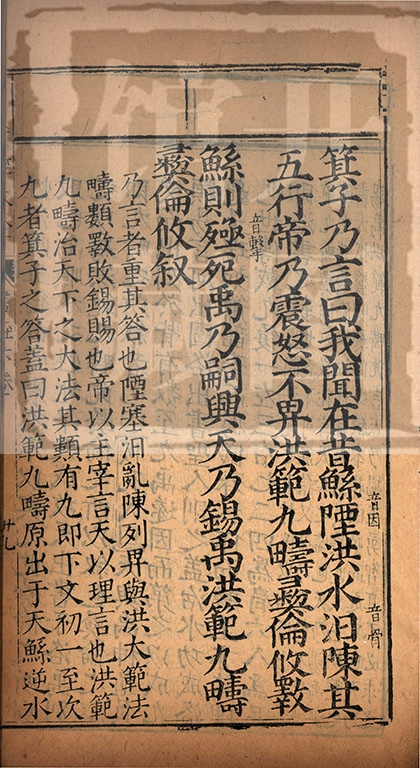 箕子乃言曰我聞在昔鯀陻洪水汩陳其
音因
音骨
五行帝乃震怒不畀洪範九疇彝倫攸斁
鯀則殛死禹乃嗣興天乃錫禹洪範九疇
彝倫攸叙
乃言者重其答也陻塞汩亂陳列畀與洪大範法
疇類斁敗錫賜也帝以主宰言天以理言也洪範
九疇治天下之大法其類有九即下文初一至次
九者箕子之答蓋曰洪範九疇原出于天鯀逆水